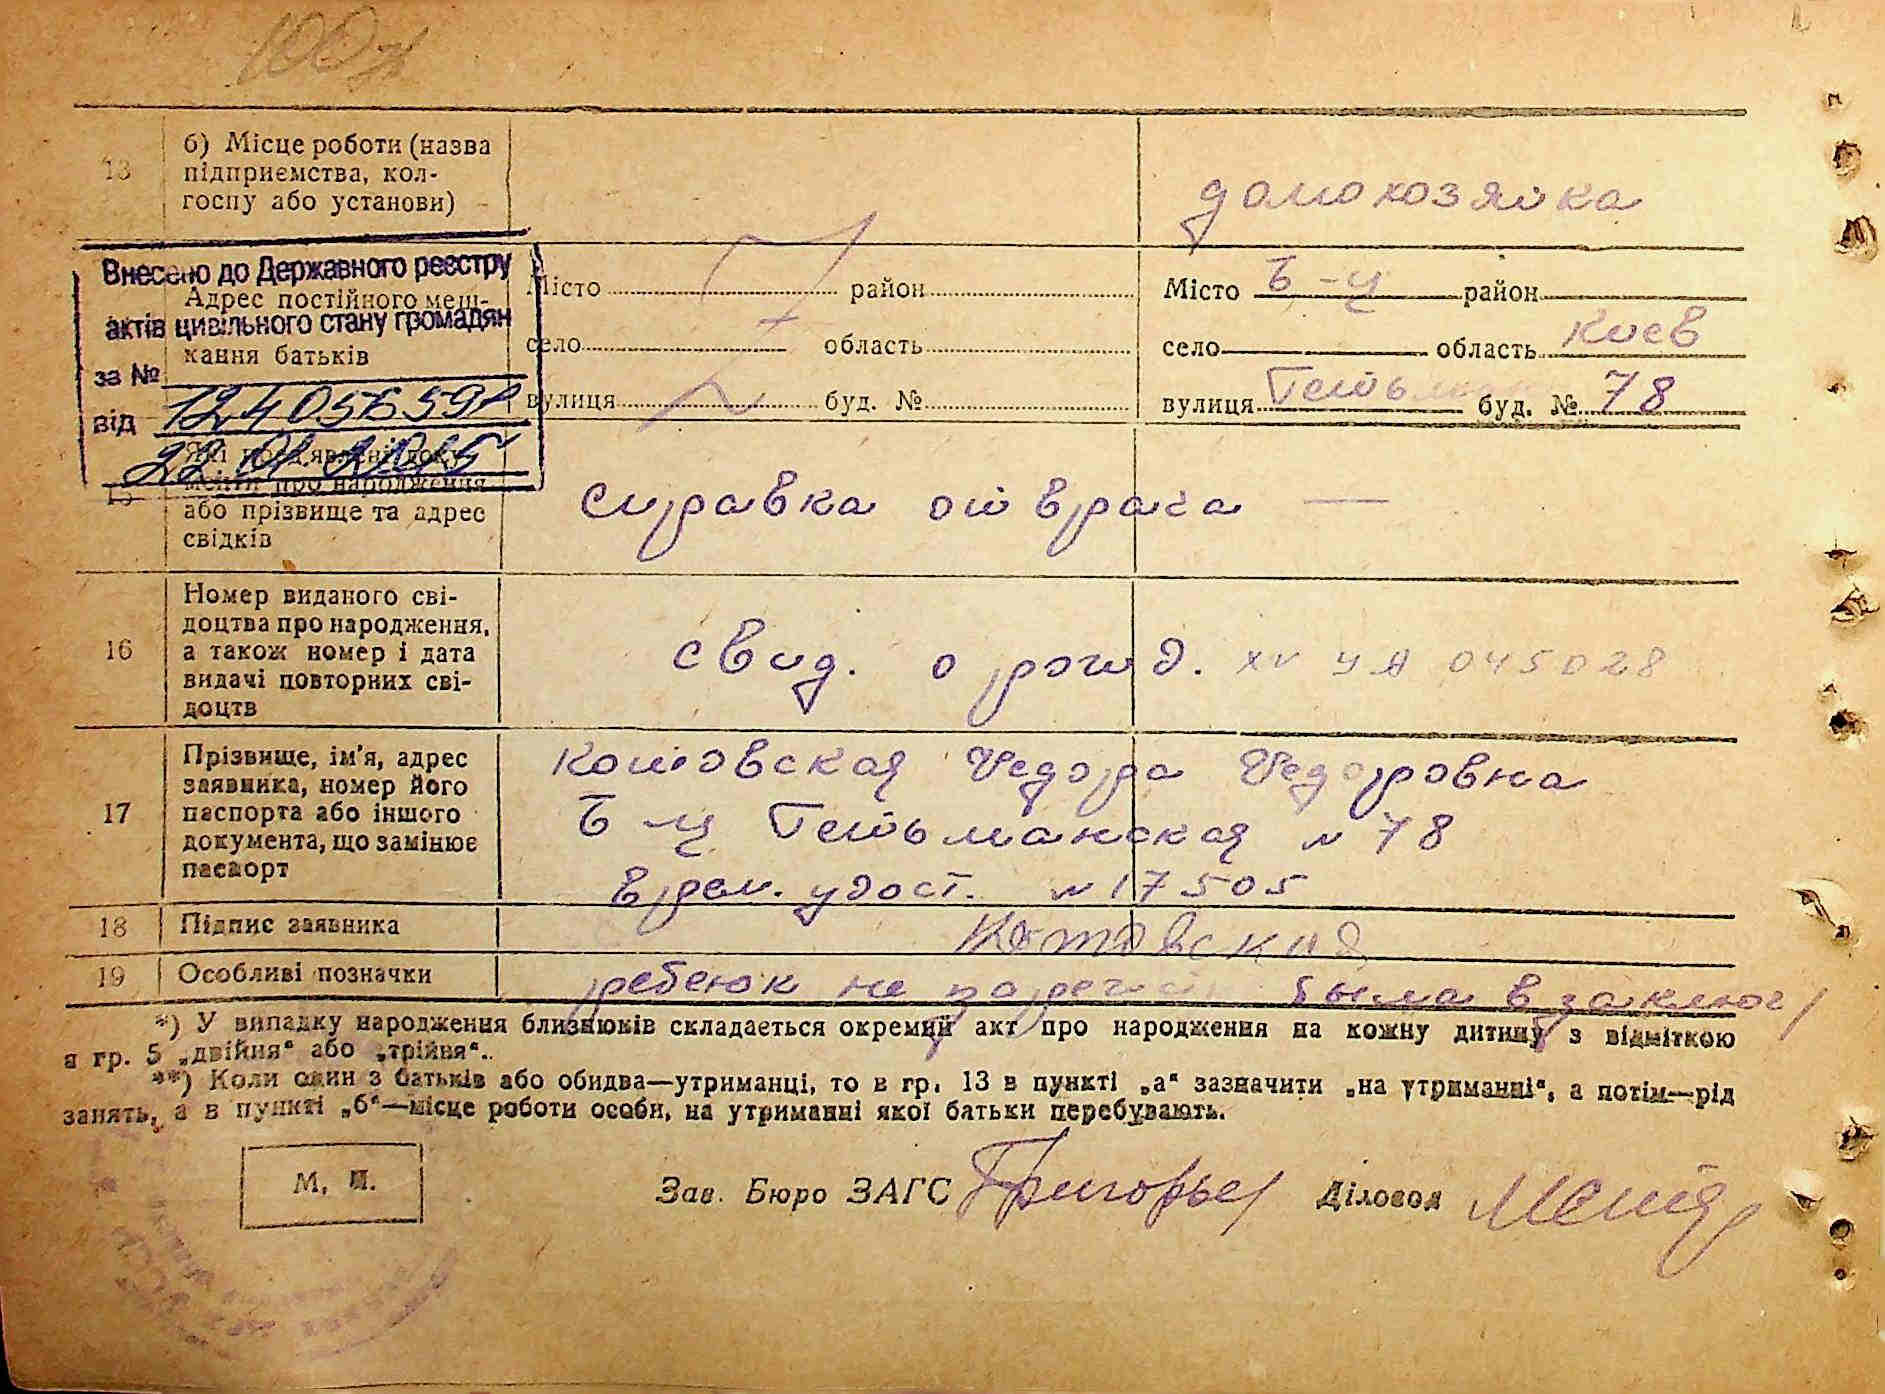 100
13 б) Місце роботи (назва
підприємства, кол-
госпу або установи)
домохозяйка
Внесено до Державного реєстру
актів цивільного стану громадян
за №
від 22.01.2015
Адрес постійного меш-
кання батьків
Місто район
село область
вулиця буд. №
Місто Б-Ц район
село область Киев
вулиця буд. № 78
15 Які пред'явлені доку-
менти про народження
або прізвище та адрес
свідків
справка от врача —
16 Номер виданого сві-
доцтва про народження,
а також номер і дата
видачі повторних сві-
доцтв
свид. о рожд. XV УА 045028
17 Прізвище, ім'я, адрес
заявника, номер його
паспорта або іншого
документа, що замінює
паспорт
Котовская Федора Федоровна
Б-Ц Гетьманская № 78
врем. удост. № 17505
18 Підпис заявника Котовская
19 Особливі позначки ребенок не была в заключ
*) У випадку народження близнюків складається окремий акт про народження на кожну дитину з відміткою
в гр. 5 „двійня“ або „трійня“.
**) Коли один з батьків або обидва—утриманці, то в гр. 13 в пункті „а“ зазначити „на утриманні“, а потім—рід
занять, а в пункті „б“—місце роботи особи, на утриманні якої батьки перебувають.
М. П.
Зав. Бюро ЗАГС Діловод